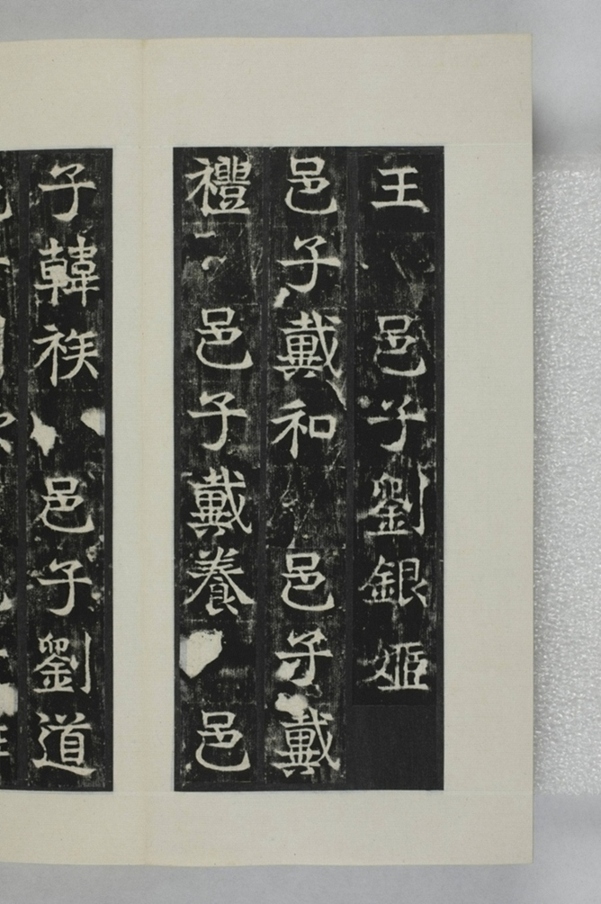 王 邑子劉銀姬
邑子戴和 邑子戴
禮 邑子戴養 邑
子韓祑 邑子劉道